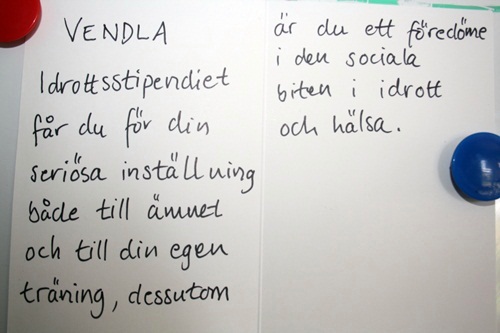 VENDLA
Idrottsstipendiet
får du för din
seriösa inställning
både till ämnet
och till din egen
träning, dessutom
är du ett föredöme
i den sociala
biten i idrott
och hälsa.